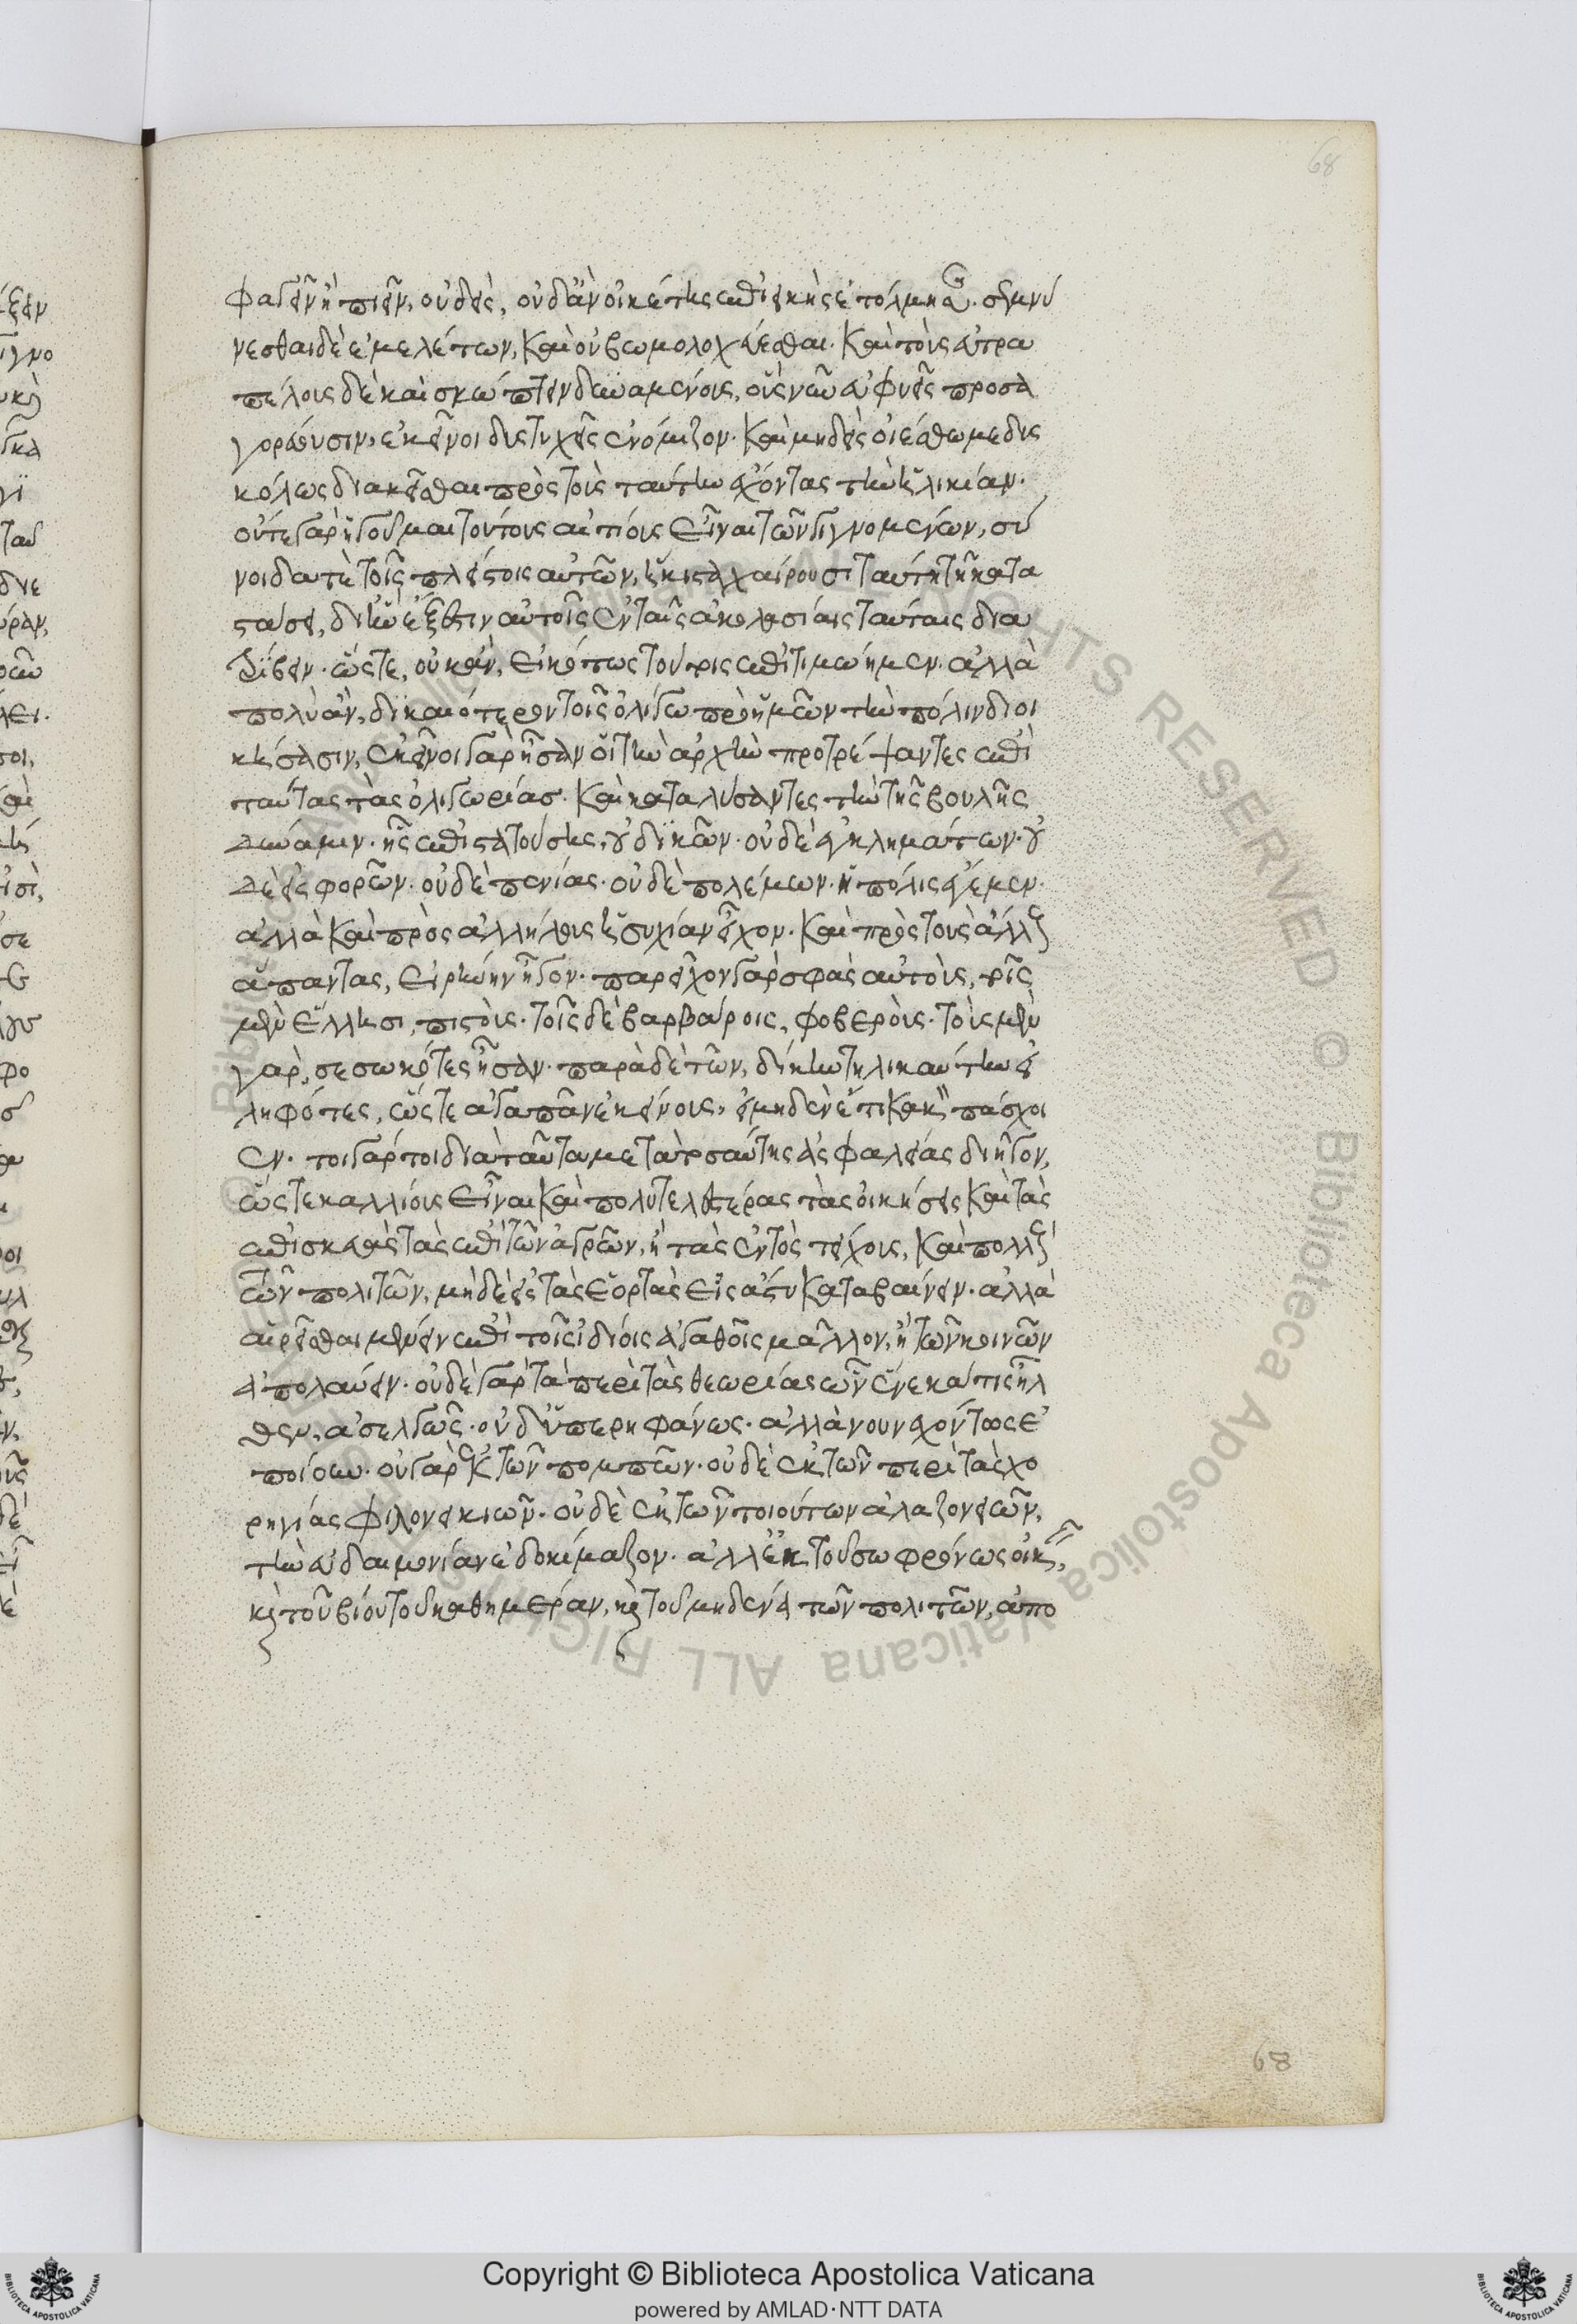 68
φαγεῖν ἢ πιεῖν, οὐδεὶς, οὐδ' ἂν οἰκέτης ἐπιεικὴς ἐτόλμησεν. σεμνύ
νεσθαι δὲ ἐμελέτων, καὶ οὐ βωμολοχεύεσθαι. καὶ τοὺς εὐτρα
πέλους δὲ καὶ σκώπτειν δυναμένους, οὓς νῦν εὐφυεῖς προσα
γορεύουσιν, ἐκεῖνοι δυστυχεῖς ἐνόμιζον. καὶ μηδεὶς οἰέσθω με δυς
κόλως διακεῖσθαι πρὸς τοὺς ταύτην ἔχοντας τὴν ἡλικίαν.
οὔτε γὰρ ἡγοῦμαι τούτους αἰτίους εἶναι τῶν γιγνομένων, σύ
νοιδα τὲ τοῖς πλείστοις αὐτῶν, ἥκιστα χαίρουσι ταύτῃ τῇ κατα
στάσει, δι' ἣν ἔξεστιν αὐτοῖς ἐν ταῖς ἀκολασίαις ταύταις δια
τρίβειν. ὥστε, οὐκ ἂν, εἰκότως τούτοις ἐπιτιμῴημεν. ἀλλὰ
πολὺ ἂν, δικαιότερον τοῖς ὀλίγῳ πρὸ ἡμῶν τὴν πόλιν διοι
κήσασιν, ἐκεῖνοι γὰρ ἦσαν οἱ τὴν ἀρχὴν προτρέψαντες ἐπὶ
ταύτας τὰς ὀλιγωρίας. καὶ καταλύσαντες τὴν τῆς βουλῆς
δύναμιν. ἧς ἐπιστατούσης, οὐ δικῶν. οὐδὲ ἐγκλημάτων. οὐ
δὲ εἰσφορῶν. οὐδὲ πενίας. οὐδὲ πολέμων. ἡ πόλις ἔγεμεν.
ἀλλὰ καὶ πρὸς ἀλλήλους ἡσυχίαν εἶχον. καὶ πρὸς τοὺς ἄλλους
ἅπαντας, εἰρήνην ἦγον. παρεῖχον γὰρ σφᾶς αὐτοὺς, τοῖς
μὲν ἕλλησι, πιστοὺς. τοῖς δὲ βαρβάροις, φοβεροὺς. τοὺς μὲν
γὰρ, σεσωκότες ἦσαν. παρὰ δὲ τῶν, δίκην τηλικαύτην εἰ
ληφότες, ὥστε ἀγαπᾶν ἐκείνους, εἰ μηδὲν ἔτι κακὸν πάσχοι
εν. τοιγάρτοι διὰ ταῦτα μετὰ τοσαύτης ἀσφαλείας διῆγον,
ὥστε καλλίους εἶναι καὶ πολυτελεστέρας τὰς οἰκήσεις καὶ τὰς
ἐπισκευὰς τὰς ἐπὶ τῶν ἀγρῶν, ἢ τὰς ἐντὸς τείχους, καὶ πολλοὺς
τῶν πολιτῶν, μηδὲ εἰς τὰς ἑορτὰς εἰς ἄστυ καταβαίνειν. ἀλλὰ
αἱρεῖσθαι μένειν ἐπὶ τοῖς ἰδίοις ἀγαθοῖς μᾶλλον, ἢ τῶν κοινῶν
ἀπολαύειν. οὐδὲ γὰρ τὰ περὶ τὰς θεωρίας ὧν ἕνεκά τις ἦλ
θεν, ἀσελγῶς. οὐδ' ὑπερηφάνως. ἀλλὰ νουνεχόντως ἐ
ποίουν. οὐ γὰρ ἐκ τῶν πομπῶν. οὐδὲ ἐκ τῶν περὶ τὰς χο
ρηγίας φιλονεικιῶν. οὐδὲ ἐκ τῶν τοιούτων ἀλαζονειῶν,
τὴν εὐδαιμονίαν ἐδοκίμαζον. ἀλλ' ἐκ τοῦ σωφρόνως οἰκεῖν,
καὶ τοῦ βίου τοῦ καθημέραν, καὶ τοῦ μηδένα τῶν πολιτῶν, ἀπο
68
Copyright © Biblioteca Apostolica Vaticana
powered by AMLAD·NTT DATA